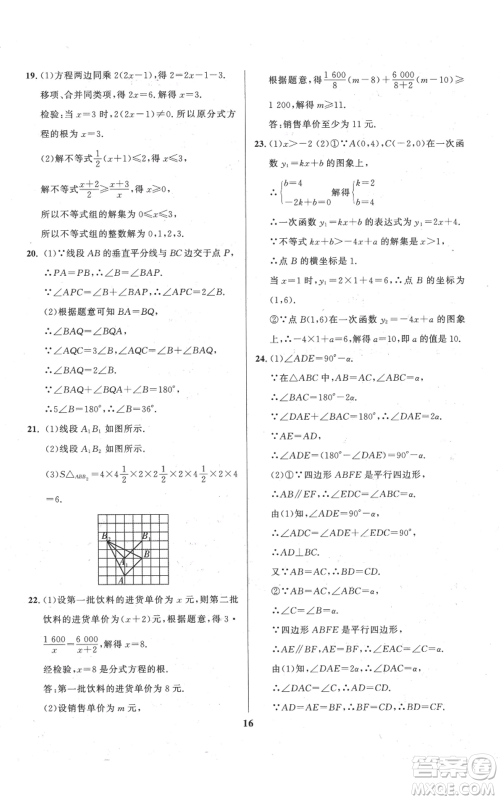 19. (1)方程两边同乘 2(2x－1)得 2=2x－1－3.
移项、合并同类项，得 2x=6. 解得 x=3.
检验：当 x=3 时，2(2x－1)≠0. 所以原分式方
程的根为 x=3.
(2)解不等式 1/2(x+1)≤2 得 x≤3,
解不等式 (x+2)/2≥(x+3)/3,得 x≥0,
所以不等式组的解集为 0≤x≤3,
所以不等式组的整数解为 0,1,2,3.
20. (1)∵线段 AB 的垂直平分线与 BC 边交于点 P,
∴PA=PB, ∴∠B=∠BAP.
∵∠APC=∠B+∠BAP, ∴∠APC=2∠B.
(2)根据题意可知 BA=BQ,
∴∠BAQ=∠BQA.
∵∠AQC=3∠B,∠AQC=∠B+∠BAQ,
∴∠BQA=2∠B.
∵∠BAQ+∠BQA+∠B=180°,
∴5∠B=180°, ∴∠B=36°.
21. (1)线段 A₁B₁ 如图所示.
(2)线段 A₂B₂ 如图所示.
=6.
22. (1)设第一批饮料的进货单价为 x 元,则第二批
饮料的进货单价为(x+2)元. 根据题意,得 3·
1 600/x=6 000/(x+2),解得 x=8.
经检验，x=8 是分式方程的根.
答：第一批饮料的进货单价为 8 元.
(2)设销售单价为 m 元,
根据题意,得 1 600/8(m－8)+6 000/(8+2)(m－10)≥
1 200,解得 m≥11.
答：销售单价至少为 11 元.
23. (1)x>－2 (2)①∵A(0,4), C(－2,0)在一次函
数 y₁=kx+b 的图象上,
∴{b=4 －2k+b=0 解得{k=2 b=4
∴一次函数 y₁=kx+b 的表达式为 y₁=2x+4.
∵不等式 kx+b>－4x+a 的解集是 x>1,
∴点 B 的横坐标是 x=1.
当 x=1 时，y₁=2×1+4=6, ∴点 B 的坐标为
(1,6).
②∵点 B(1,6)在一次函数 y₂=－4x+a 的图象
上, ∴－4×1+a=6, ∴a=10, 即 a 的值是 10.
24. (1)∠ADE=90°－α.
∵在△ABC 中,∠BAC=2α,∠B=α,
∴∠ACB=180°－∠BAC－∠B=180°－2α－α.
∵AE=AD,
∴∠ADE=(180°－∠DAE)÷2=90°－α.
(2)①∵四边形 ABFE 是平行四边形,
∴AB∥EF, ∴∠EDC=∠ABC=α.
由(1)知,∠ADE=90°－α,
∴∠ADC=∠ADE+∠EDC=90°, ∴AD⊥BC.
∵AB=AC, ∴BD=CD.
②∵AB=AC,∠ABC=α, ∴∠C=∠B=α.
∵四边形 ABFE 是平行四边形,
∴AE∥BF,AE=BF. ∴∠EAC=∠C=α.
由(1)知∠DAE=2α, ∴∠DAC=α,
∴∠DAC=∠C, ∴AD=CD.
∵AD=AE=BF, ∴BF=CD, ∴BD=CF.
16